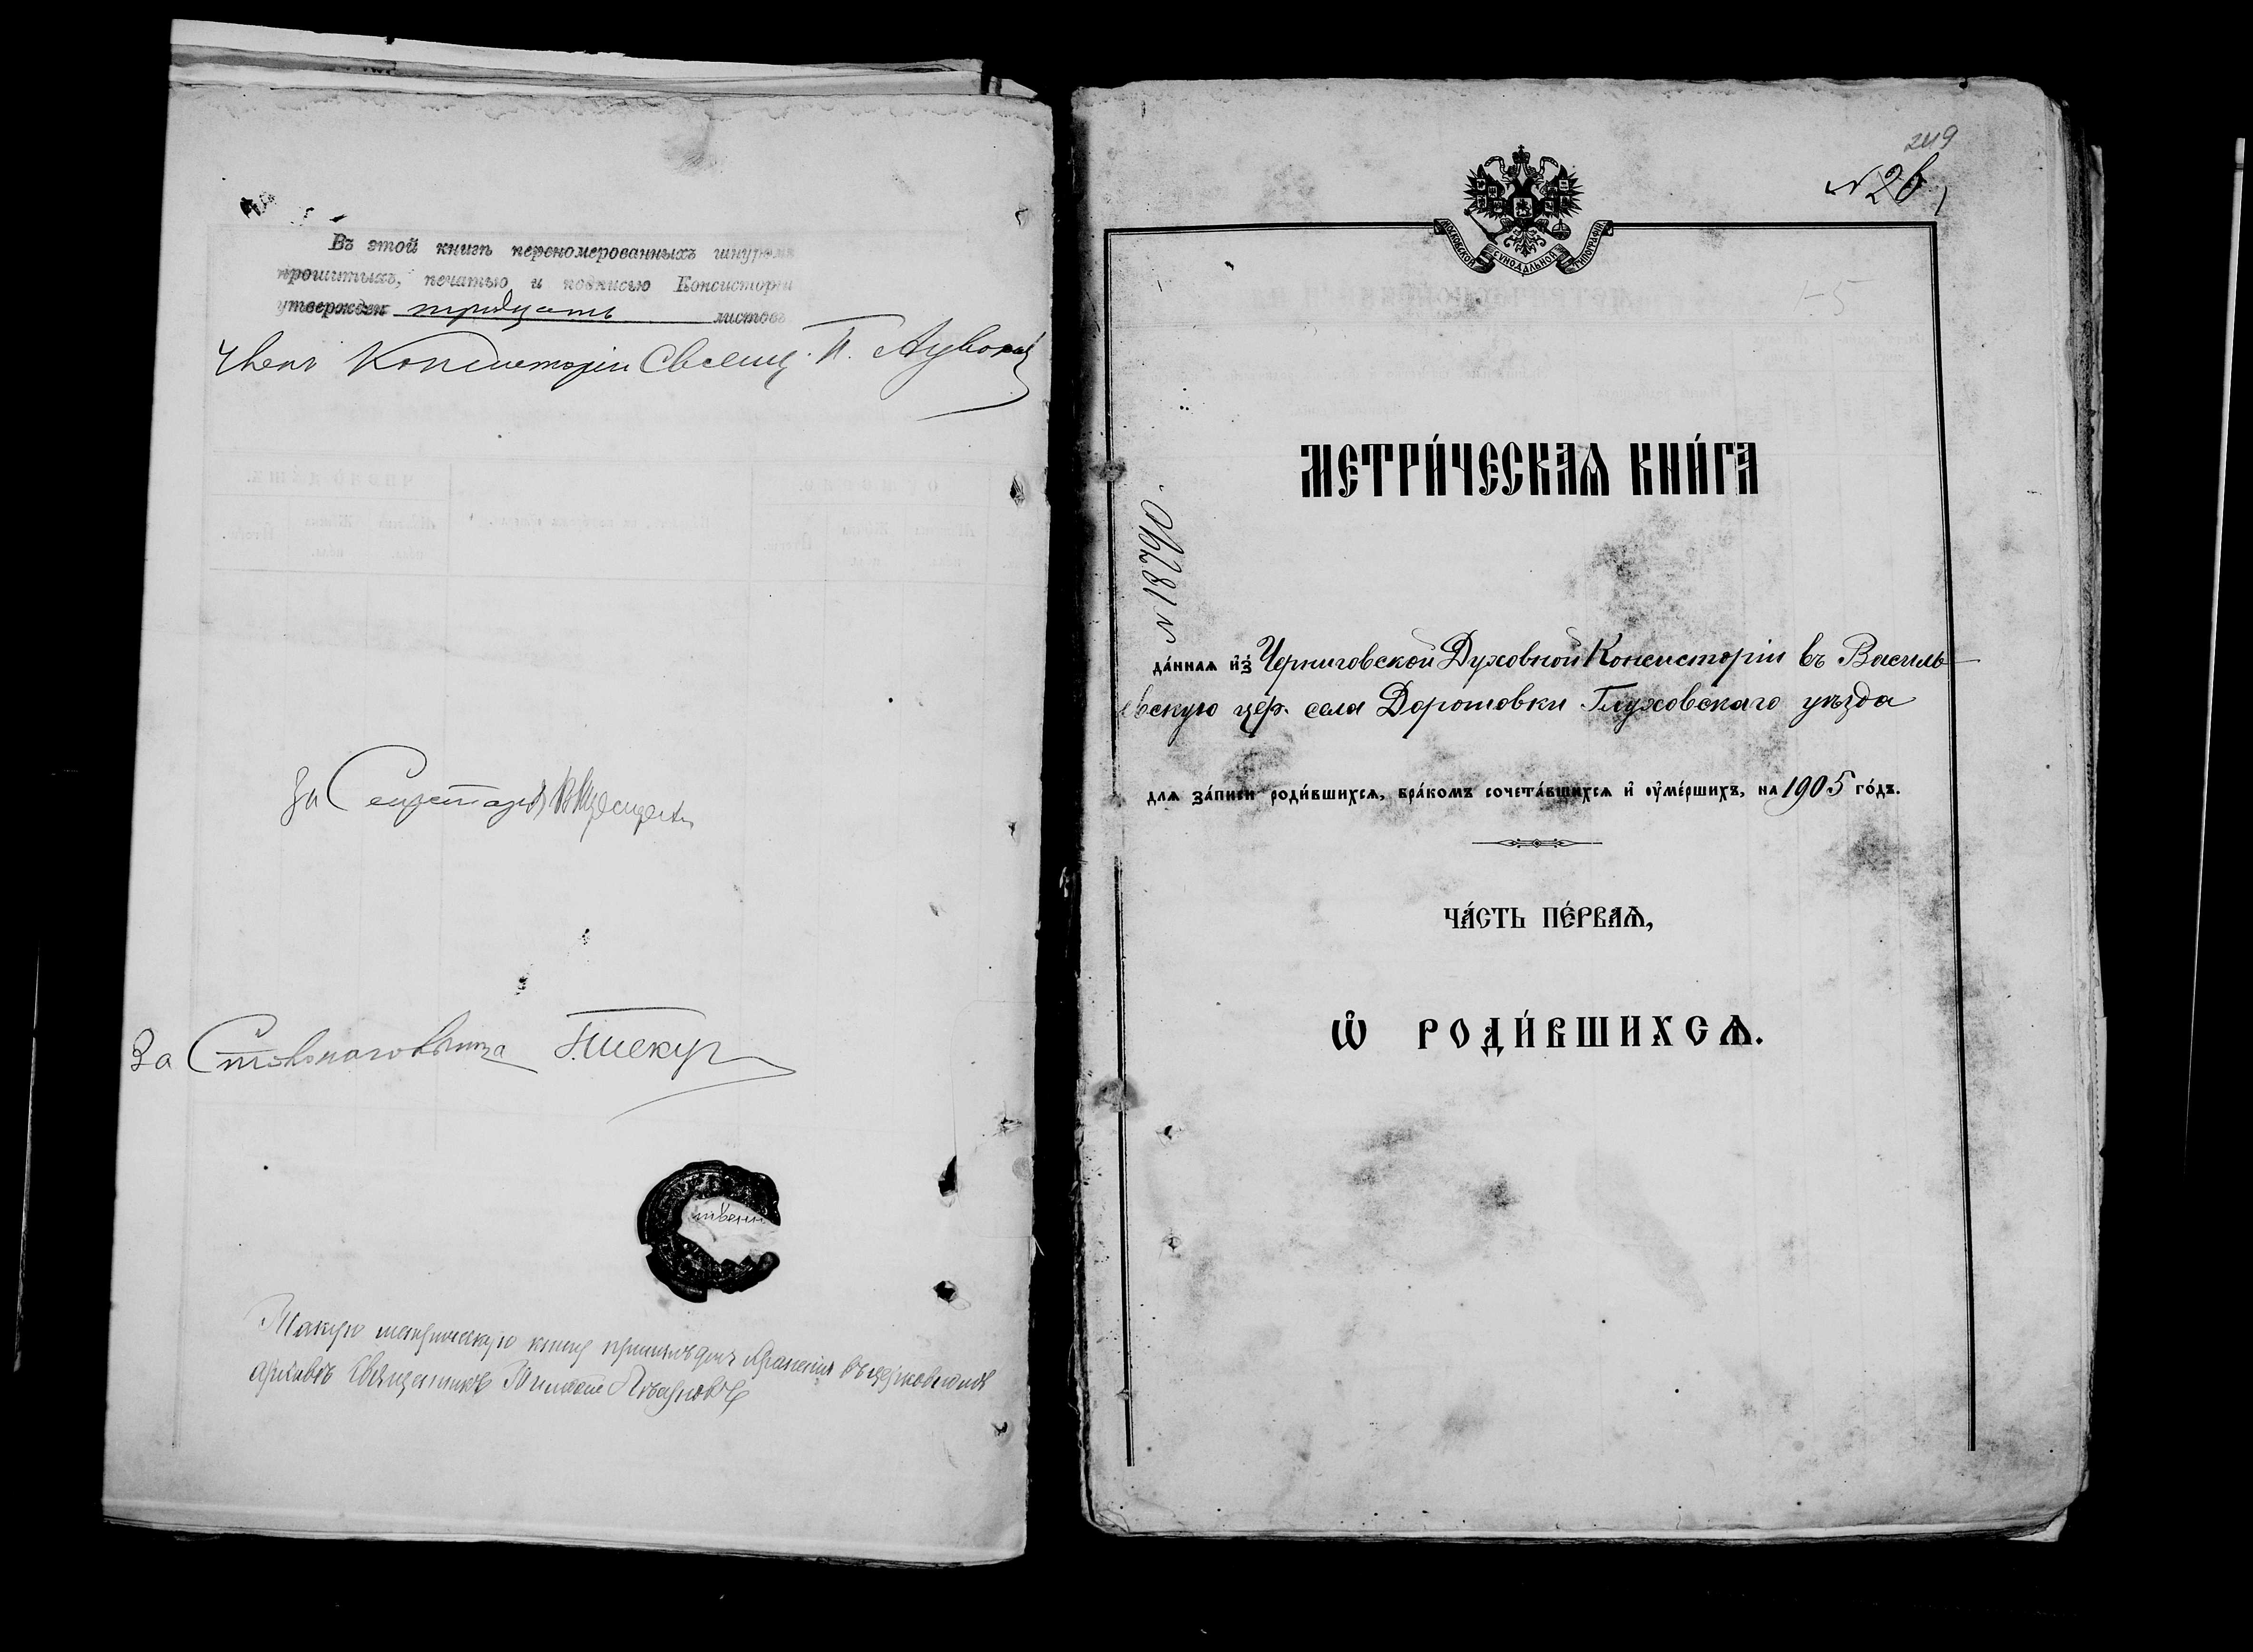 Въ этой книгѣ перекомерованныхъ шнуромъ
прошитыхъ, печатью и подписью Консисторіи
утвержден тридцать листовъ
Членъ Консисторіи Свящ. П.
За Секретаря
За Столоначальника
Такую метрическую книгу принялъ для храненія въ церковномъ
архивѣ Священникъ
249
№ 26
МОСКОВСКОЙ СѴНОДАЛЬНОЙ ТИПОГРАФІИ
1-5
МЕТРИ́ЧЕСКАѦ КНИ́ГА
№ 18790.
да́ннаѧ и҆з̾ Черниговской Духовной Консисторіи въ Василь-
евскую цер. села Дорошовки Глуховскаго уѣзда
длѧ за́писи роди́вшихсѧ, бра́комъ сочета́вшихсѧ и҆ оу҆ме́ршихъ, на 1905 го́дъ.
ЧА́СТЬ ПЕ́РВАѦ,
Ѡ҆ РОДИ́ВШИХСѦ.